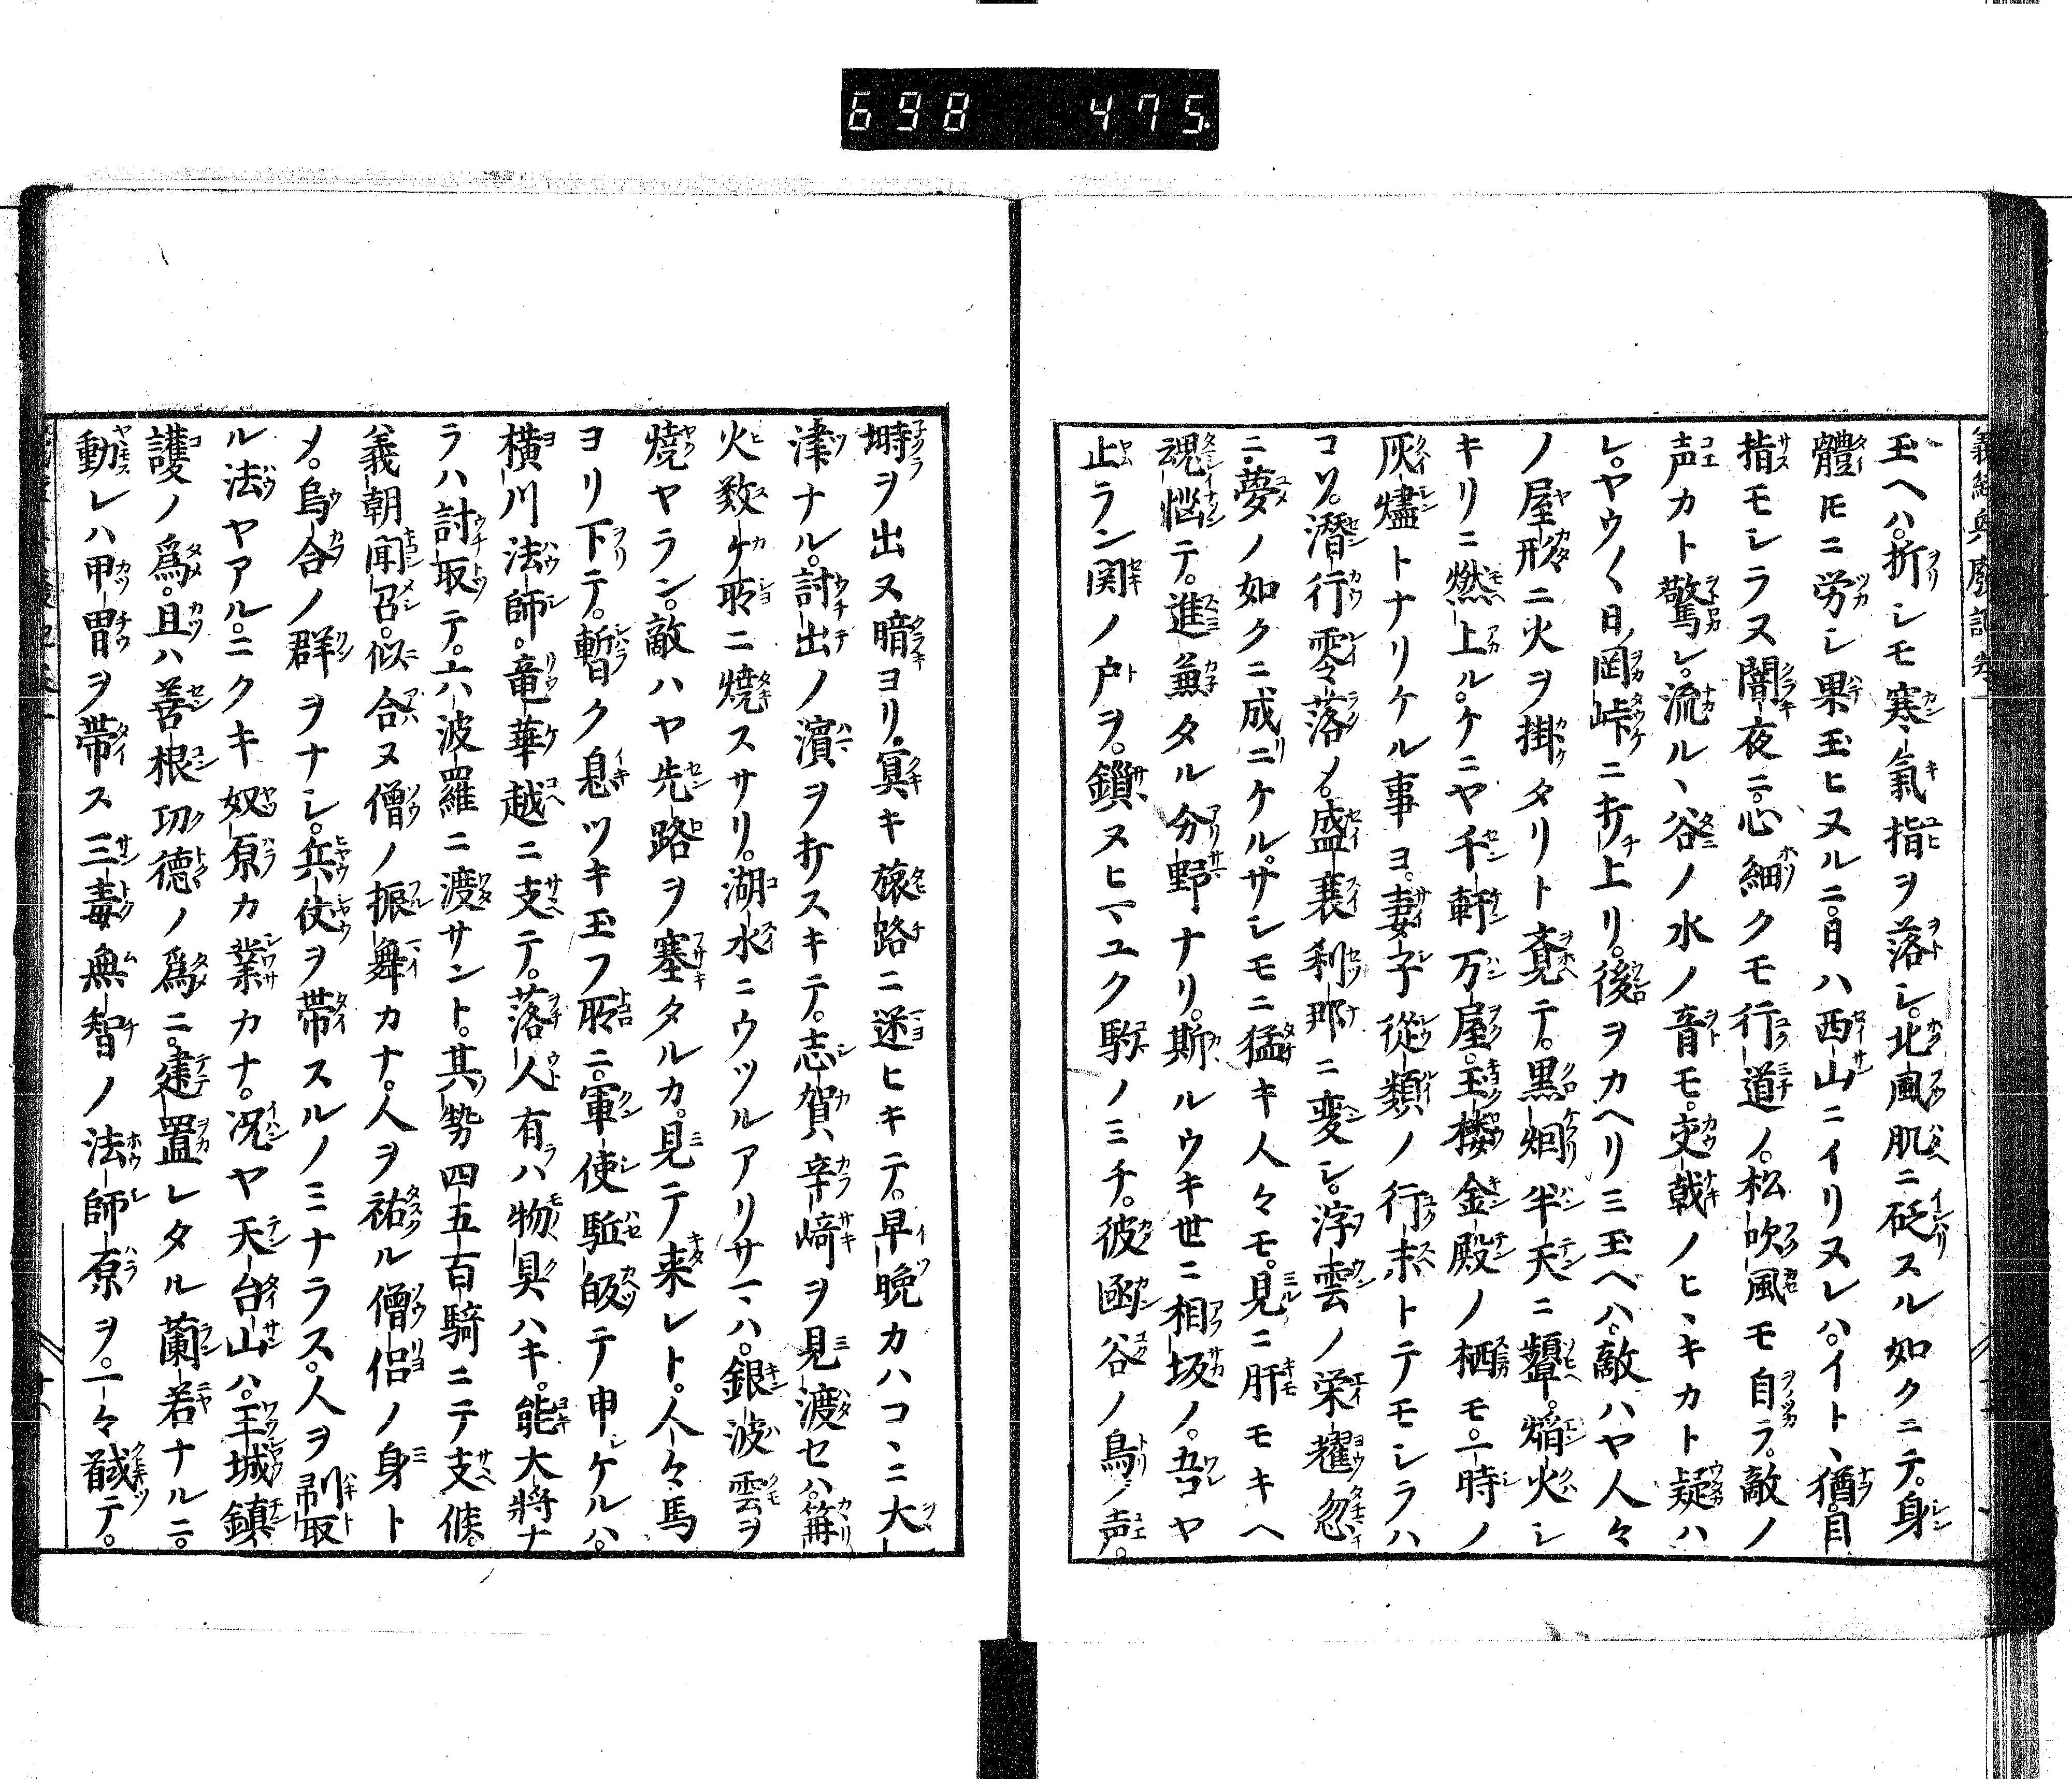 698 475.
玉ヘハ。折シモ寒氣指ヲ落シ。北風肌ニ砭スル如クニテ。身
體モニ労シ果玉ヒヌルニ。月ハ西山ニイリヌレハ。イトヽ猶目
指モシラヌ闇夜ニ。心細クモ行道ノ。松吹風モ自ラ。敵ノ
声カト驚シ。流ルヽ谷ノ水ノ音モ。交戟ノヒヽキカト疑ハ
レ。ヤウ〱日岡峠ニ打上リ。後ヲカヘリミ玉ヘハ。敵ハヤ人々
ノ屋形ニ火ヲ掛タリト覚テ。黒烟半天ニ聳。焔火シ
キリニ燃上ル。ケニヤ千軒万屋。玉楼金殿ノ栖モ。一時ノ
灰燼トナリケル事ヨ。妻子從類ノ行末トテモシラハ
コソ。潜行零落メ。盛衰刹那ニ変シ。浮雲ノ栄耀忽
ニ夢ノ如クニ成ニケル。サシモニ猛キ人々モ。見ニ肝モキヘ
魂惱テ。進兼タル分野ナリ。斯ルウキ世ニ相坂ノ。吾ヤ
止ラン関ノ戸ヲ。鎖ヌヒマユク駒ノミチ。彼函谷ノ鳥ノ声。
塒ヲ出ヌ暗ヨリ。冥キ旅路ニ迷ヒキテ。早晩カハコヽニ大
津ナル。討出ノ濱ヲ打スキテ。志賀辛﨑ヲ見渡セハ。篝
火数ケ所ニ燒スサリ。湖水ニウツルアリサマハ。銀波雲ヲ
燒ヤラン。敵ハヤ先路ヲ塞タルカ。見テ来レト。人々馬
ヨリ下テ。暫ク息ツキ玉フ所ニ。軍使駈皈テ申ケルハ。
横川法師。竜華越ニ支テ。落人有ハ物具ハキ。能大將ナ
ラハ討取テ。六波羅ニ渡サント。其勢四五百騎ニテ支候。
義朝聞召。似合ヌ僧ノ振舞カナ。人ヲ祐ル僧侶ノ身ト
メ。烏合ノ群ヲナシ。兵仗ヲ帯スルノミナラス。人ヲ剥取
ル法ヤアル。ニクキ奴原カ業カナ。况ヤ天台山ハ。王城鎮
護ノ爲。且ハ善根功德ノ爲ニ。建置レタル蘭若ナルニ。
動レハ甲冑ヲ帯ス三毒無智ノ法師原ヲ。一々馘テ。